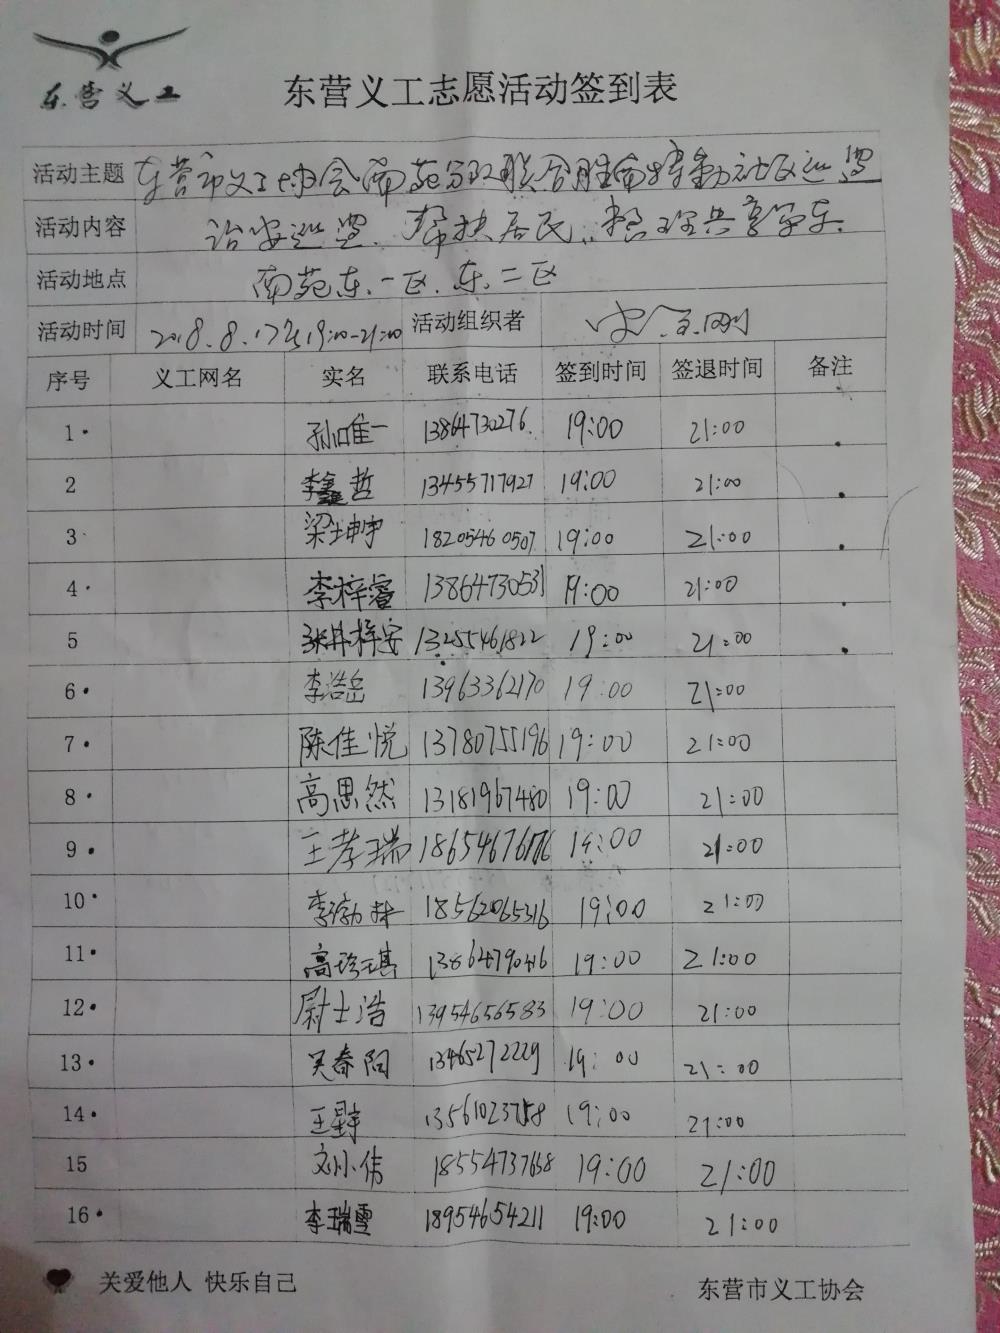 东营义工
东营义工志愿活动签到表
活动主题 东营市义工协会南苑 联合胜南特勤社区巡逻
活动内容 治安巡逻、帮扶居民、整理共享单车
活动地点 南苑东一区、东二区
活动时间 2018.8.17 19:00-21:00 活动组织者
序号 义工网名 实名 联系电话 签到时间 签退时间 备注
1 孙唯一 13864730276 19:00 21:00
2 李鑫哲 13455717927 19:00 21:00
3 梁坤宇 18205460507 19:00 21:00
4 李梓睿 13864730531 19:00 21:00
5 梓安 13255461822 19:00 21:00
6 李浩岳 13963362170 19:00 21:00
7 陈佳悦 13780755196 19:00 21:00
8 高思然 13181967480 19:00 21:00
9 王孝瑞 19:00 21:00
10 李渤林 18562065316 19:00 21:00
11 高珍琪 13864790416 19:00 21:00
12 尉士浩 13954656583 19:00 21:00
13 吴春阳 13465272229 19:00 21:00
14 王 19:00 21:00
15 刘小伟 18554737658 19:00 21:00
16 李瑞雪 18954654211 19:00 21:00
关爱他人 快乐自己 东营市义工协会